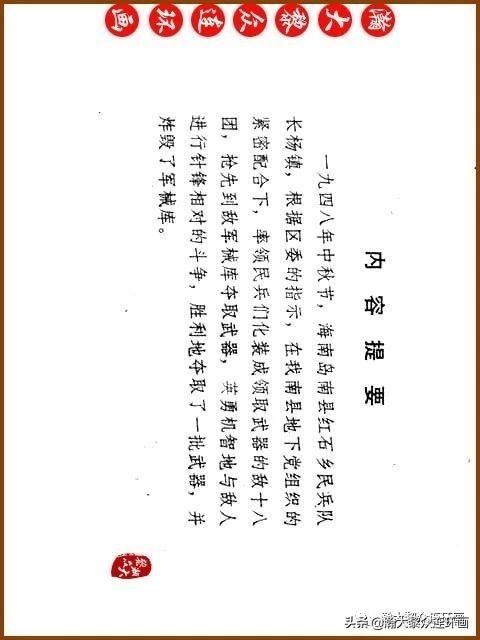 瀚大黎众连环画
内容提要
一九四八年中秋节，海南岛南县红石乡民兵队
长杨镇，根据区委的指示，在我南县地下党组织的
紧密配合下，率领民兵们化装成领取武器的敌十八
团，抢先到敌军械库夺取武器，英勇机智地与敌人
进行针锋相对的斗争，胜利地夺取了一批武器，并
炸毁了军械库。
瀚大黎众连环画
头条@瀚大黎众连环画